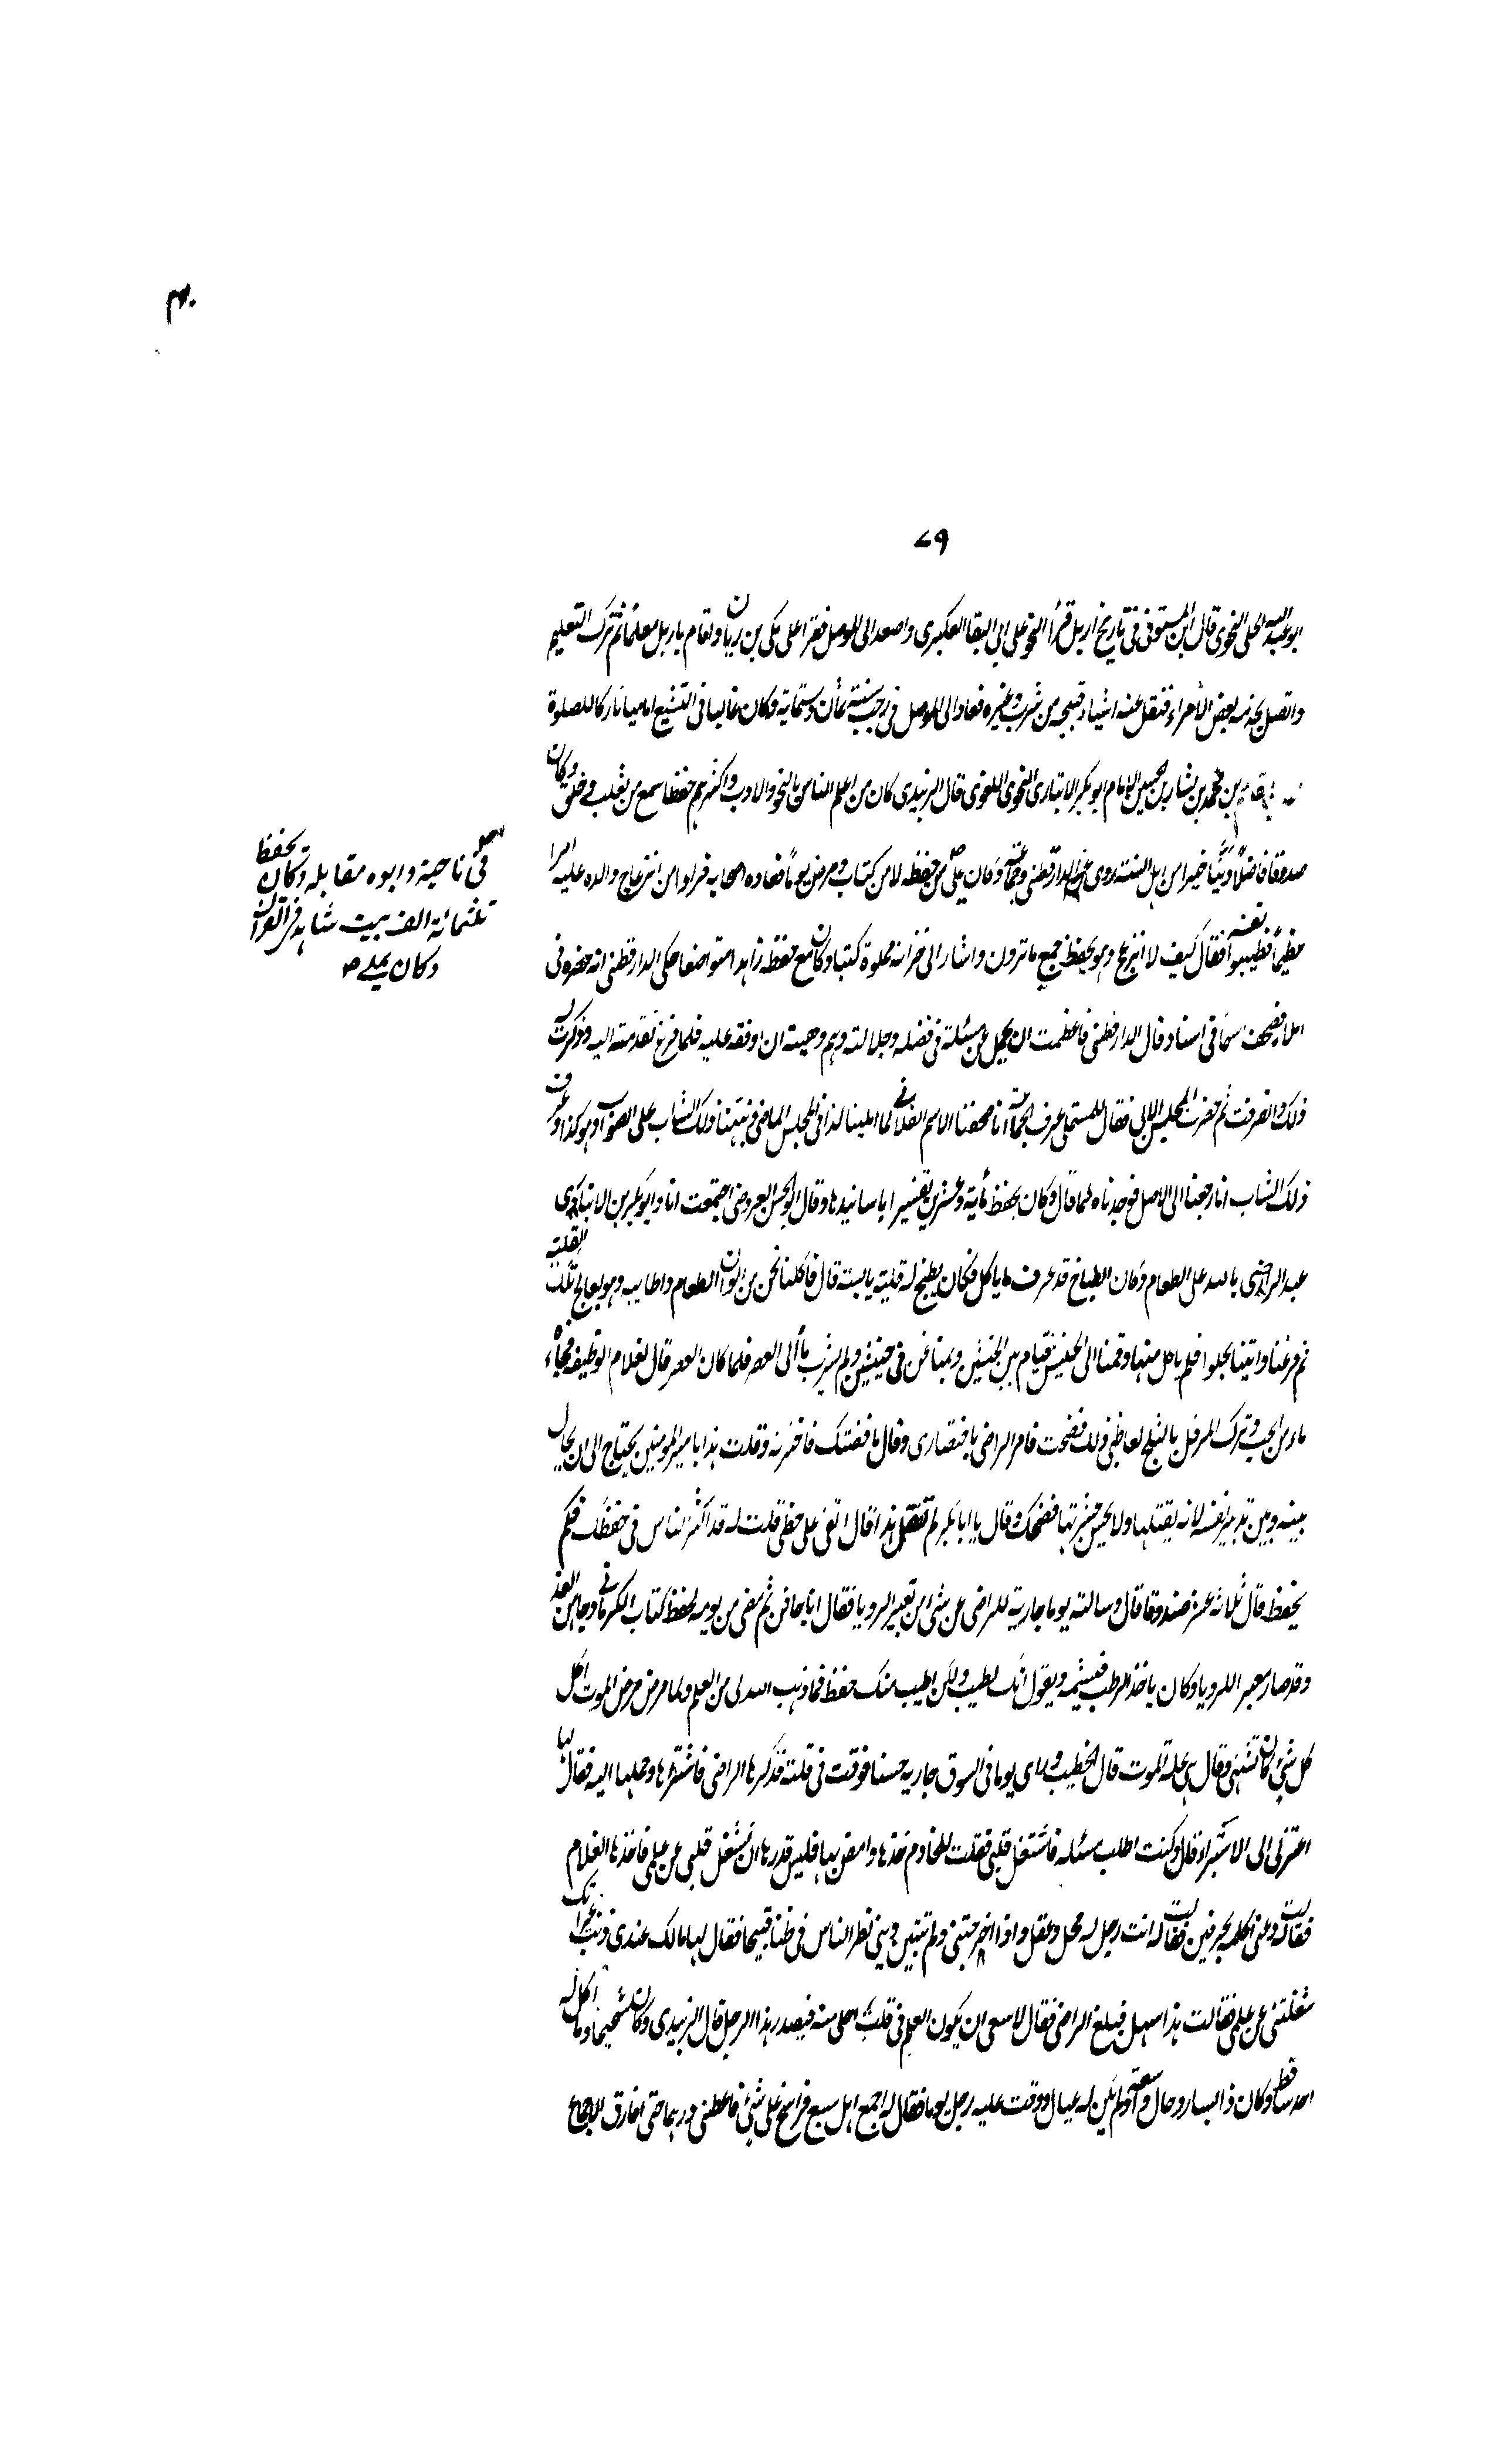 ۷۹
ابو عبد الله الحلي النحوي قال ابن المستوفي في تاريخ اربل قرأ النحو على ابي البقا العكبري واصعد الى الموصل فقرا على مكي بن ريان واقام باربل معلما ثم ترك التعليم
واتصل بخدمة بعض الأمراء فنقل عنه اشياء قبيحه من شرب وغيره فعاد الى الموصل في رجب سنة ثمان وستماية وكان غاليا في التشيع اماميا تاركا للصلوة
بن محمد بن بشار بن الحسين الامام ابو بكر الانباري النحوي اللغوي قال الزبيدي كان من اعلم الناس بالنحو والادب واكثرهم حفظا سمع من ثعلب وخلق وكان
صدوقا فاضلا دينا خيرا من اهل السنة روى عنه الدارقطني وجماعة وكان يملي من حفظه لا من كتاب ومرض يوما فعاده اصحابه فراوا من انزعاج والده عليه امرا
عظيما فطيبوا نفسه فقال كيف لا انزعج وهو يحفظ جميع ما ترون واشار الى خزانة مملوة كتبا وكان مع حفظه زاهدا متواضعا حكى الدارقطني انه حضره في
املا فصحف اسما في اسناد قال الدارقطني فاعظمت ان يحمل عن مثله في فضله وجلالته وهم وهبته ان اوقفه عليه فلما فرغ تقدمت اليه وذكرت له
ذلك وانصرفت ثم حضرت المجلس الاتي فقال للمستملي عرف الجماعة انا صحفنا الاسم الفلاني لما املينا كذا في المجلس الماضي فنبهنا ذلك الشاب على الصواب وهو كذا وعرف
ذلك الشاب انا رجعنا الى الاصل فوجدناه كما قال وكان يحفظ مأية وعشرين تفسيرا باسانيدها وقال ابو الحسن العروضي اجتمعت انا وابو بكر بن الانباري
عند الراضي بالله على الطعام وكان الطباخ قد عرف ما ياكل فكان يطبخ له قلية يابسة قال فاكلنا نحن من الوان الطعام واطايبه وهو يعالج تلك القلية
ثم فرغنا واتينا بحلوا فلم ياكل منها وقمنا الى الخيش فنام بين الخيشين ونمنا نحن في خيشين ولم يشرب ماء الى العصر فلما كان العصر قال لغلام الوظيفة فجاء
ماء من الحب وترك المزمل بالثلج فغاظني ذلك فصحت فامر الراضي باحضاري وقال ما قصتك فاخبرته وقلت هذا يا امير المومنين يحتاج الى ان يحال
بينه وبين تدبير نفسه لانه يقتلها ولا يحسن عشرتها فضحك وقال يا ابا بكر لم تفعل هذا قال ابقي على حفظي قلت له قد اكثر الناس في حفظك فكم
تحفظ قال ثلاثة عشر صندوقا قال وسالته يوما جارية للراضي عن شئ من تعبير الرويا فقال انا حاقن ثم مضى من يومه فحفظ كتاب الكرماني وجاء من الغد
وقد صار معبرا للرويا وكان ياخذ الرطب فيشمه ويقول انك لطيب ولكن اطيب منك حفظ ما وهب الله لي من العلم ولما مرض مرض الموت اكل
كل شئ كان تشتهي وقال هي علة الموت قال الخطيب وراى يوما في السوق جارية حسنا فوقعت في قلبه فذكرها للراضي فاشتراها وحملها اليه فقال لها
اعتزلي الى الاستبراء قال وكنت اطلب مسئلة فاشتغل قلبي فقلت للخادم خذها وامض بها فليس قدرها ان تشغل قلبي عن علمي فاخذها الغلام
فقالت دعني اكلمه بحرفين فقالت له انت رجل له محل وعقل واذا اخرجتني ولم تبين ذنبي ظن الناس في ظنا قبيحا فقال لها مالك عندي ذنب غير انك
شغلتني عن علمي فقالت هذا سهل فبلغ الراضي فقال لا ينبغي ان يكون العلم في قلب احد احلى منه في صدر هذا الرجل قال الزبيدي وكان شحيحا وما اكل له
احد شيا قط وكان ذا يسار وحال واسعة ولم يكن له عيال ووقف عليه رجل يوما فقال له اجمع اهل سبع فراسخ على شئ فاعطني درهما حتى افارق الاجماع
في ناحية وابوه مقابله وكان يحفظ
ثلثمائة الف بيت شاهد في القرآن
وكان يملي